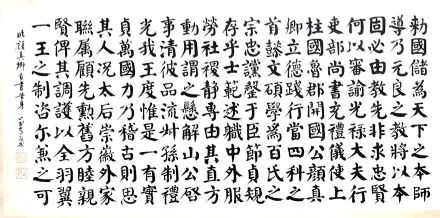 勅國儲為天下之本師
導乃元良之教將以本
固必由教先非求忠賢
何以審諭光祿大夫行
吏部尚書充禮儀使上
柱國魯郡開國公顏真
卿立德踐行當四科之
首懿文碩學為百氏之
宗忠讜罄于臣節貞規
存乎士範述職中外服
勞社稷靜專由其直方
動用謂之懸解山公啓
事清彼品流叔孫制禮
光我王度惟是一有實
貞萬國力乃稽古則思
其人況太后崇徽外家
聯屬顧先勳舊方睦親
賢俾其調護以全羽翼
一王之制咨尔兼之可
臨顏真卿自書告身